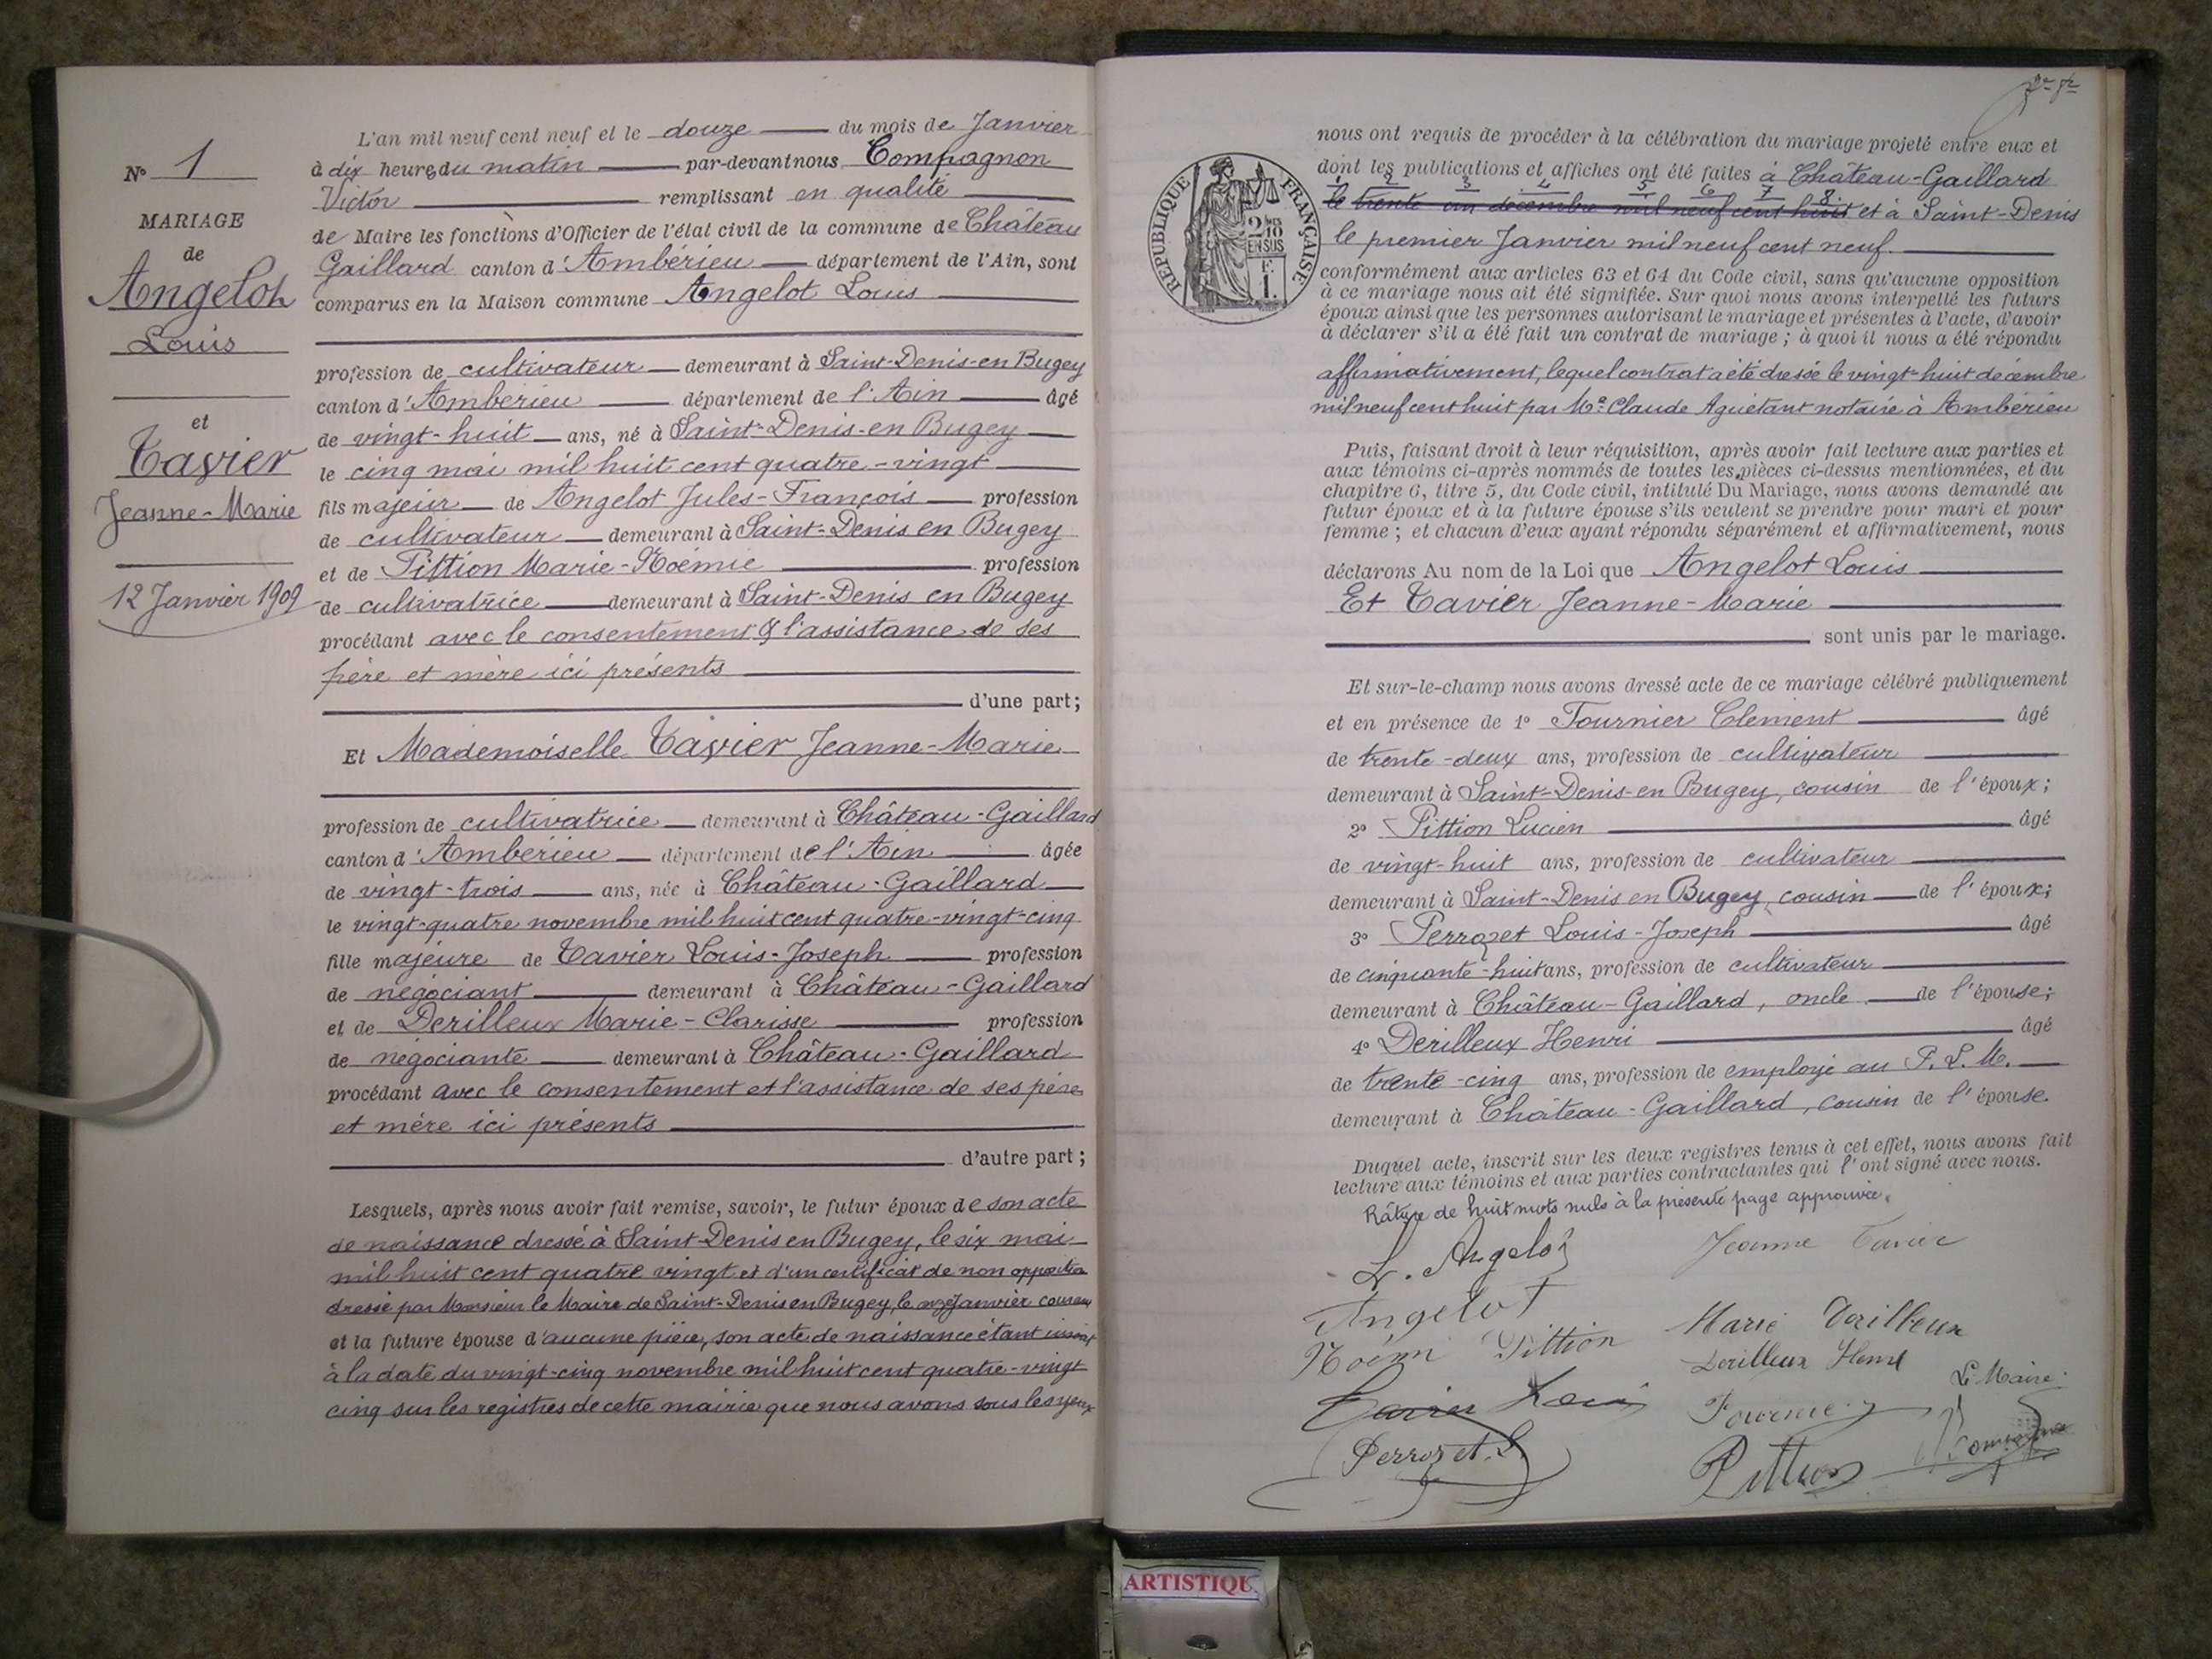 N° 1
MARIAGE
de
Angelot
Louis
et
Tavier
Jeanne-Marie
12 Janvier 1909
L'an mil neuf cent neuf et le douze du mois de Janvier
à dix heures du matin par-devant nous Compagnon
Victor remplissant en qualité
de Maire les fonctions d'Officier de l'état civil de la commune de Château
Gaillard canton d'Ambérieu département de l'Ain, sont
comparus en la Maison commune Angelot Louis
profession de cultivateur demeurant à Saint-Denis-en Bugey
canton d'Ambérieu département de l'Ain âgé
de vingt-huit ans, né à Saint-Denis-en Bugey
le cinq mai mil huit cent quatre-vingt
fils majeur de Angelot Jules-François profession
de cultivateur demeurant à Saint-Denis en Bugey
et de Pittion Marie-Noémie profession
de cultivatrice demeurant à Saint-Denis en Bugey
procédant avec le consentement & l'assistance de ses
père et mère ici présents
d'une part;
Et Mademoiselle Tavier Jeanne-Marie
profession de cultivatrice demeurant à Château-Gaillard
canton d'Ambérieu département de l'Ain âgée
de vingt-trois ans, née à Château-Gaillard
le vingt-quatre novembre mil huit cent quatre-vingt-cinq
fille majeure de Tavier Louis-Joseph profession
de négociant demeurant à Château-Gaillard
et de Derilleux Marie-Clarisse profession
de négociante demeurant à Château-Gaillard
procédant avec le consentement et l'assistance de ses père
et mère ici présents
d'autre part;
Lesquels, après nous avoir fait remise, savoir, le futur époux de son acte
de naissance dressé à Saint-Denis en Bugey, le six mai
mil huit cent quatre vingt et d'un certificat de non opposition
dressé par Monsieur le Maire de Saint-Denis en Bugey, le onze Janvier courant
et la future épouse d'aucune pièce, son acte de naissance étant inscrit
à la date du vingt-cinq novembre mil huit cent quatre-vingt
cinq sur les registres de cette mairie que nous avons sous les yeux
RÉPUBLIQUE FRANÇAISE
2/10
EN SUS
F.
1.
nous ont requis de procéder à la célébration du mariage projeté entre eux et
dont les publications et affiches ont été faites à Château-Gaillard
1 2 3 4 5 6 7 8
le trente un décembre mil neuf cent huit et à Saint-Denis
le premier Janvier mil neuf cent neuf.
conformément aux articles 63 et 64 du Code civil, sans qu'aucune opposition
à ce mariage nous ait été signifiée. Sur quoi nous avons interpellé les futurs
époux ainsi que les personnes autorisant le mariage et présentes à l'acte, d'avoir
à déclarer s'il a été fait un contrat de mariage; à quoi il nous a été répondu
affirmativement, lequel contrat a été dressé le vingt-huit décembre
mil neuf cent huit par Me Claude Aguétant notaire à Ambérieu
Puis, faisant droit à leur réquisition, après avoir fait lecture aux parties et
aux témoins ci-après nommés de toutes les pièces ci-dessus mentionnées, et du
chapitre 6, titre 5, du Code civil, intitulé Du Mariage, nous avons demandé au
futur époux et à la future épouse s'ils veulent se prendre pour mari et pour
femme; et chacun d'eux ayant répondu séparément et affirmativement, nous
déclarons Au nom de la Loi que Angelot Louis
Et Tavier Jeanne-Marie
sont unis par le mariage.
Et sur-le-champ nous avons dressé acte de ce mariage célébré publiquement
et en présence de 1° Fournier Clément âgé
de trente-deux ans, profession de cultivateur
demeurant à Saint-Denis-en Bugey, cousin de l'époux;
2° Pittion Lucien âgé
de vingt-huit ans, profession de cultivateur
demeurant à Saint-Denis en Bugey, cousin de l'époux;
3° Perrozet Louis-Joseph âgé
de cinquante-huit ans, profession de cultivateur
demeurant à Château-Gaillard, oncle de l'épouse;
4° Derilleux Henri âgé
de trente-cinq ans, profession de employé au P. L. M.
demeurant à Château-Gaillard, cousin de l'épouse.
Duquel acte, inscrit sur les deux registres tenus à cet effet, nous avons fait
lecture aux témoins et aux parties contractantes qui l'ont signé avec nous.
Râture de huit mots nuls à la présente page approuvée.
L. Angelot
Jeanne Tavier
Angelot
Noémi Pittion
Marie Derilleux
Derilleux Henri
Le Maire
Tavier Louis
Fournier
Perrozet. L.
Pittion
Compagnon
ARTISTIQU